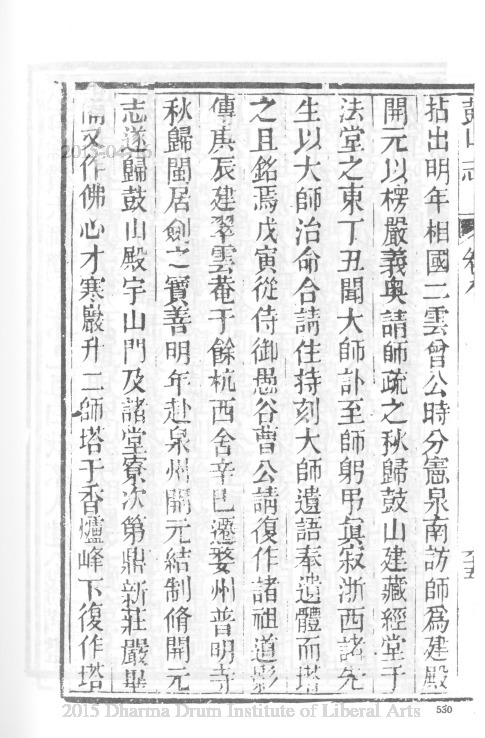 鼓山志
卷九
六五
拈出明年相國二雲曾公時分憲泉南訪師爲建殿
開元以楞嚴義奧請師疏之秋歸鼓山建藏經堂于
法堂之東丁丑聞大師訃至師躬弔眞寂浙西諸先
生以大師治命合請住持刻大師遺語奉遺體而塔
之且銘焉戊寅從侍御愚谷曹公請復作諸祖道影
傳庚辰建翠雲菴于餘杭西舍辛巳遷婺州普明寺
秋歸閩居劍之寶善明年赴泉州開元結制脩開元
志遂歸鼓山殿宇山門及諸堂寮次第鼎新莊嚴畢
備又作佛心才寒巖升二師塔于香爐峰下復作塔
2015 Dharma Drum Institute of Liberal Arts
530